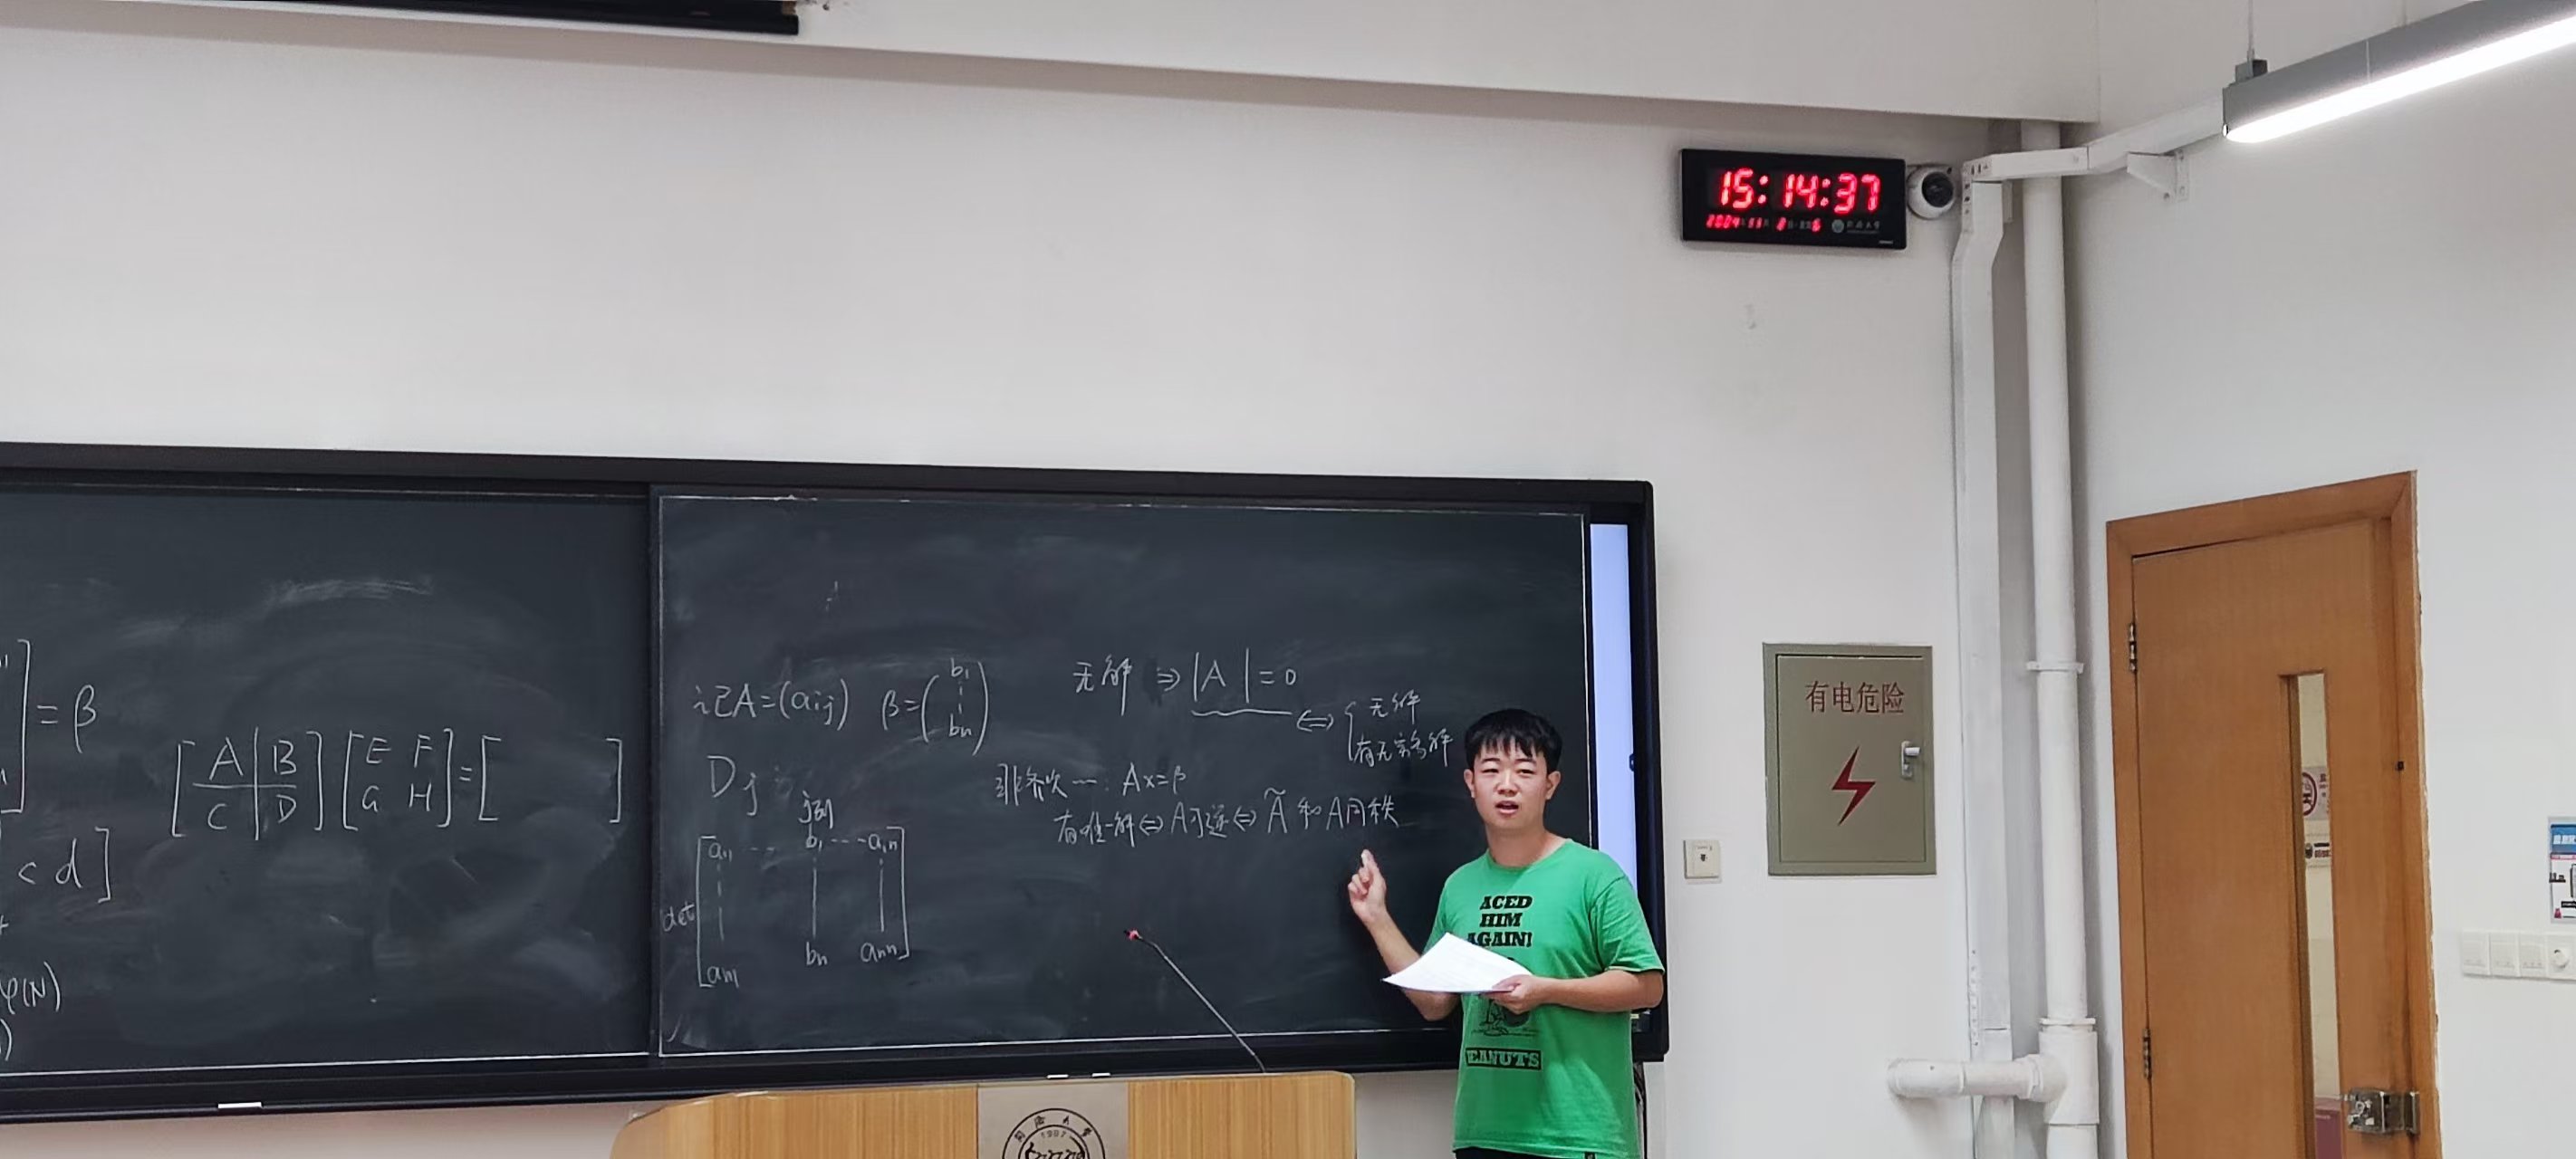 15:14:37
= β
[A B
C D] [E F
G H] = [ ]
c d]
φ(N)
记A=(aij) β=(b1
⋮
bn)
Dj
j列
det[a11 -- b1 --- a1n
an1 bn ann]
无解 ⇒ |A| = 0
⇔ {无解
有无穷多解
非齐次一: Ax=β
有唯一解⇔A可逆⇔Ã和A同秩
有电危险
ACED
HIM
AGAIN!
EANUTS
1907